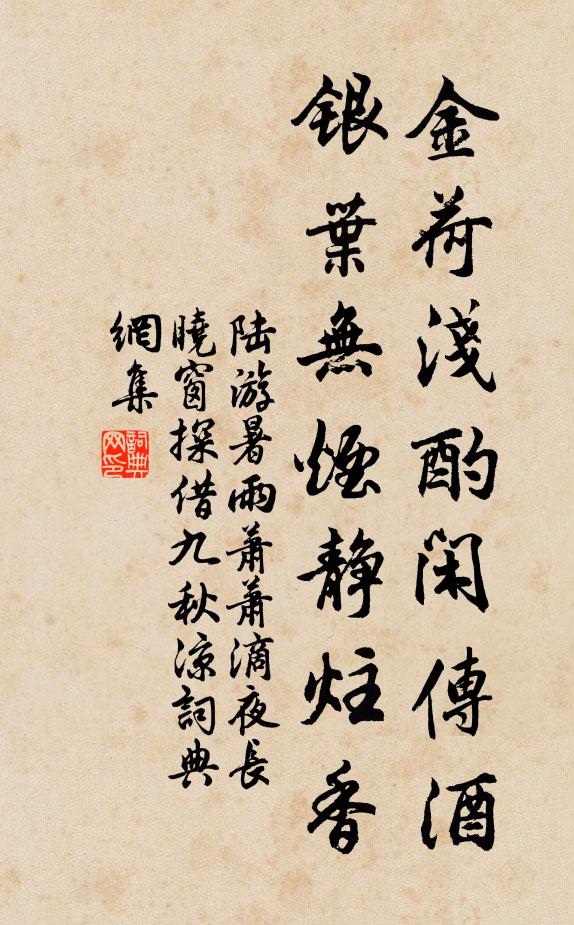 金荷淺酌閑傳酒
銀葉無煙靜炷香
陆游暑雨蕭蕭滴夜長
曉窗探借九秋涼詞典
網集
詞典
网印